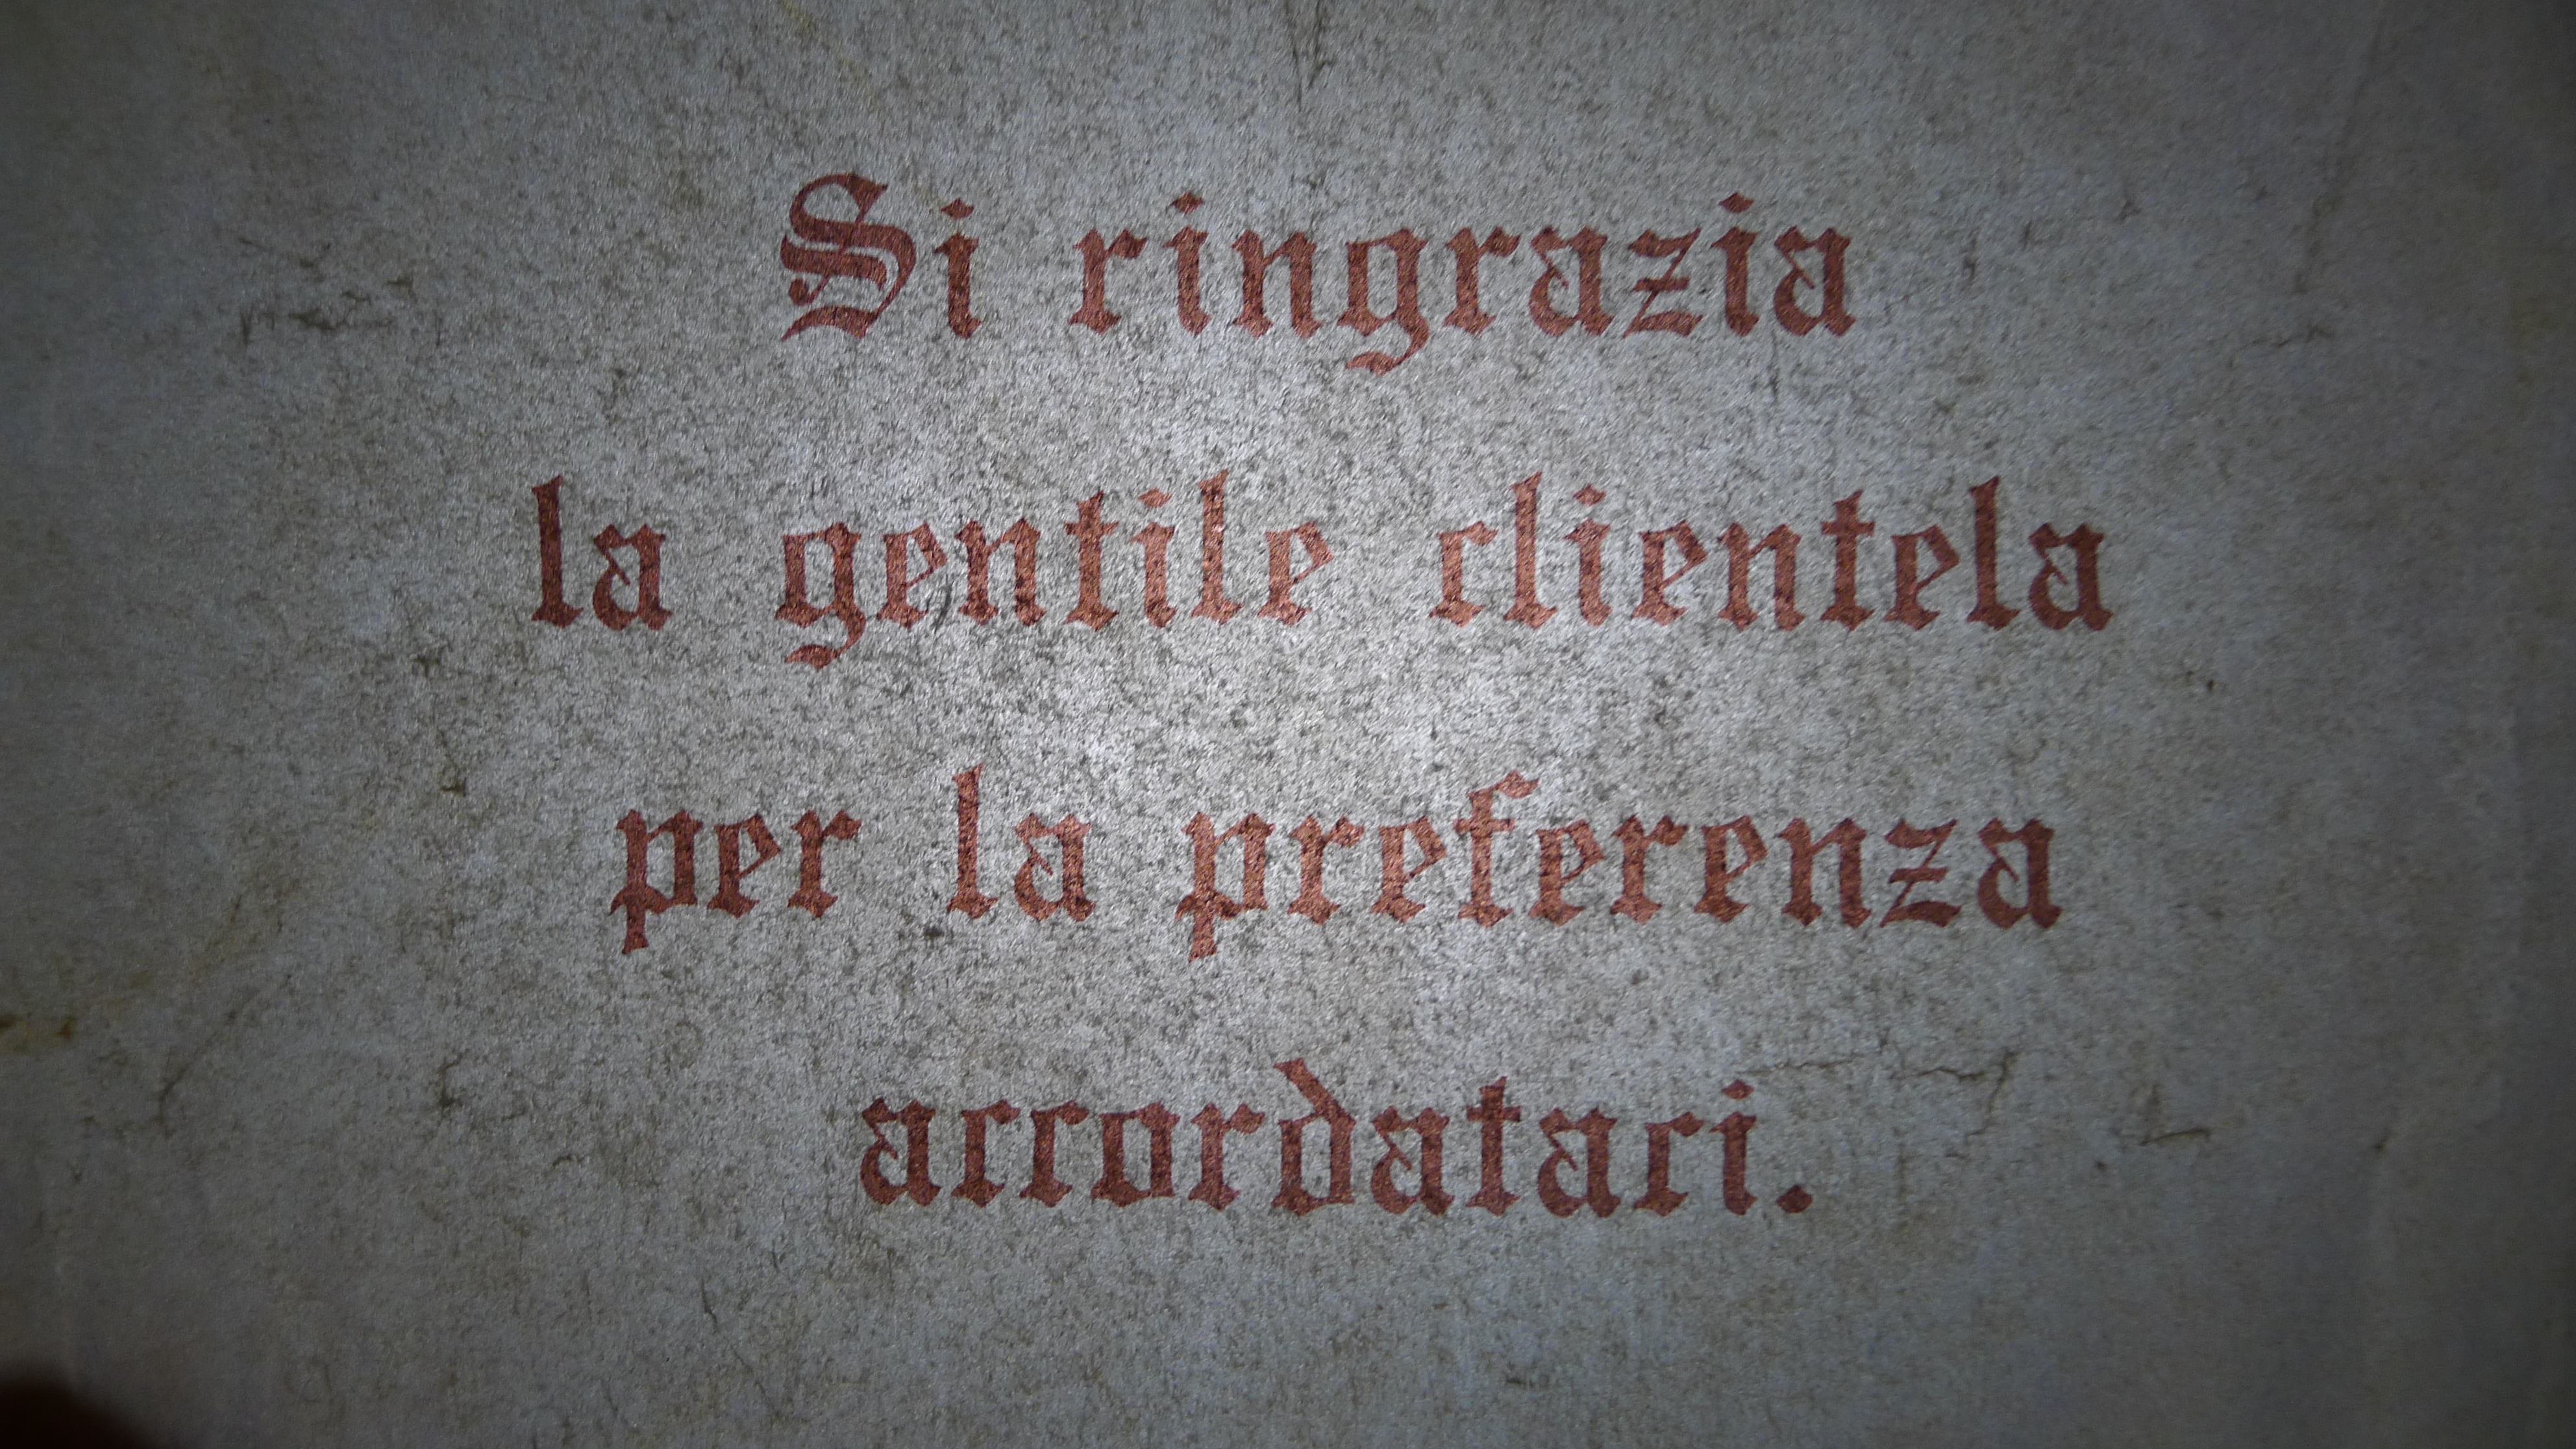 Si ringrazia
la gentile clientela
per la preferenza
accordataci.